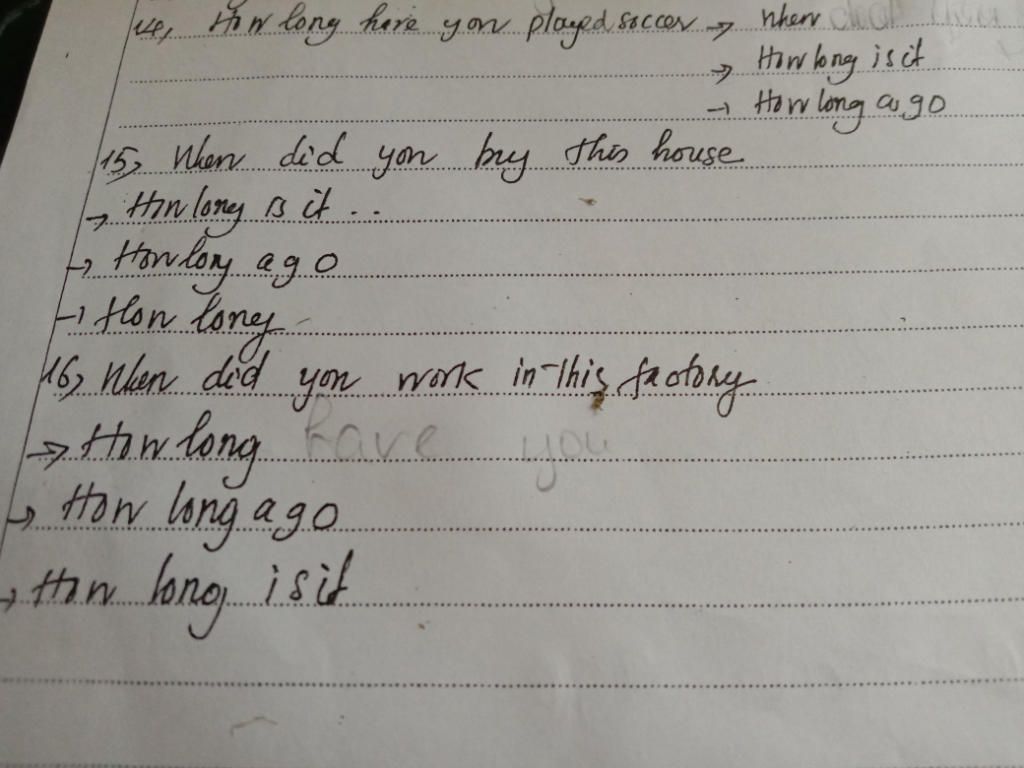 14, How long have you played soccer → When did you
→ How long is it
→ How long ago
15, When did you buy this house
→ How long is it ..
→ How long ago
→ How long
16, When did you work in this factory
→ How long have you
→ How long ago
→ How long is it